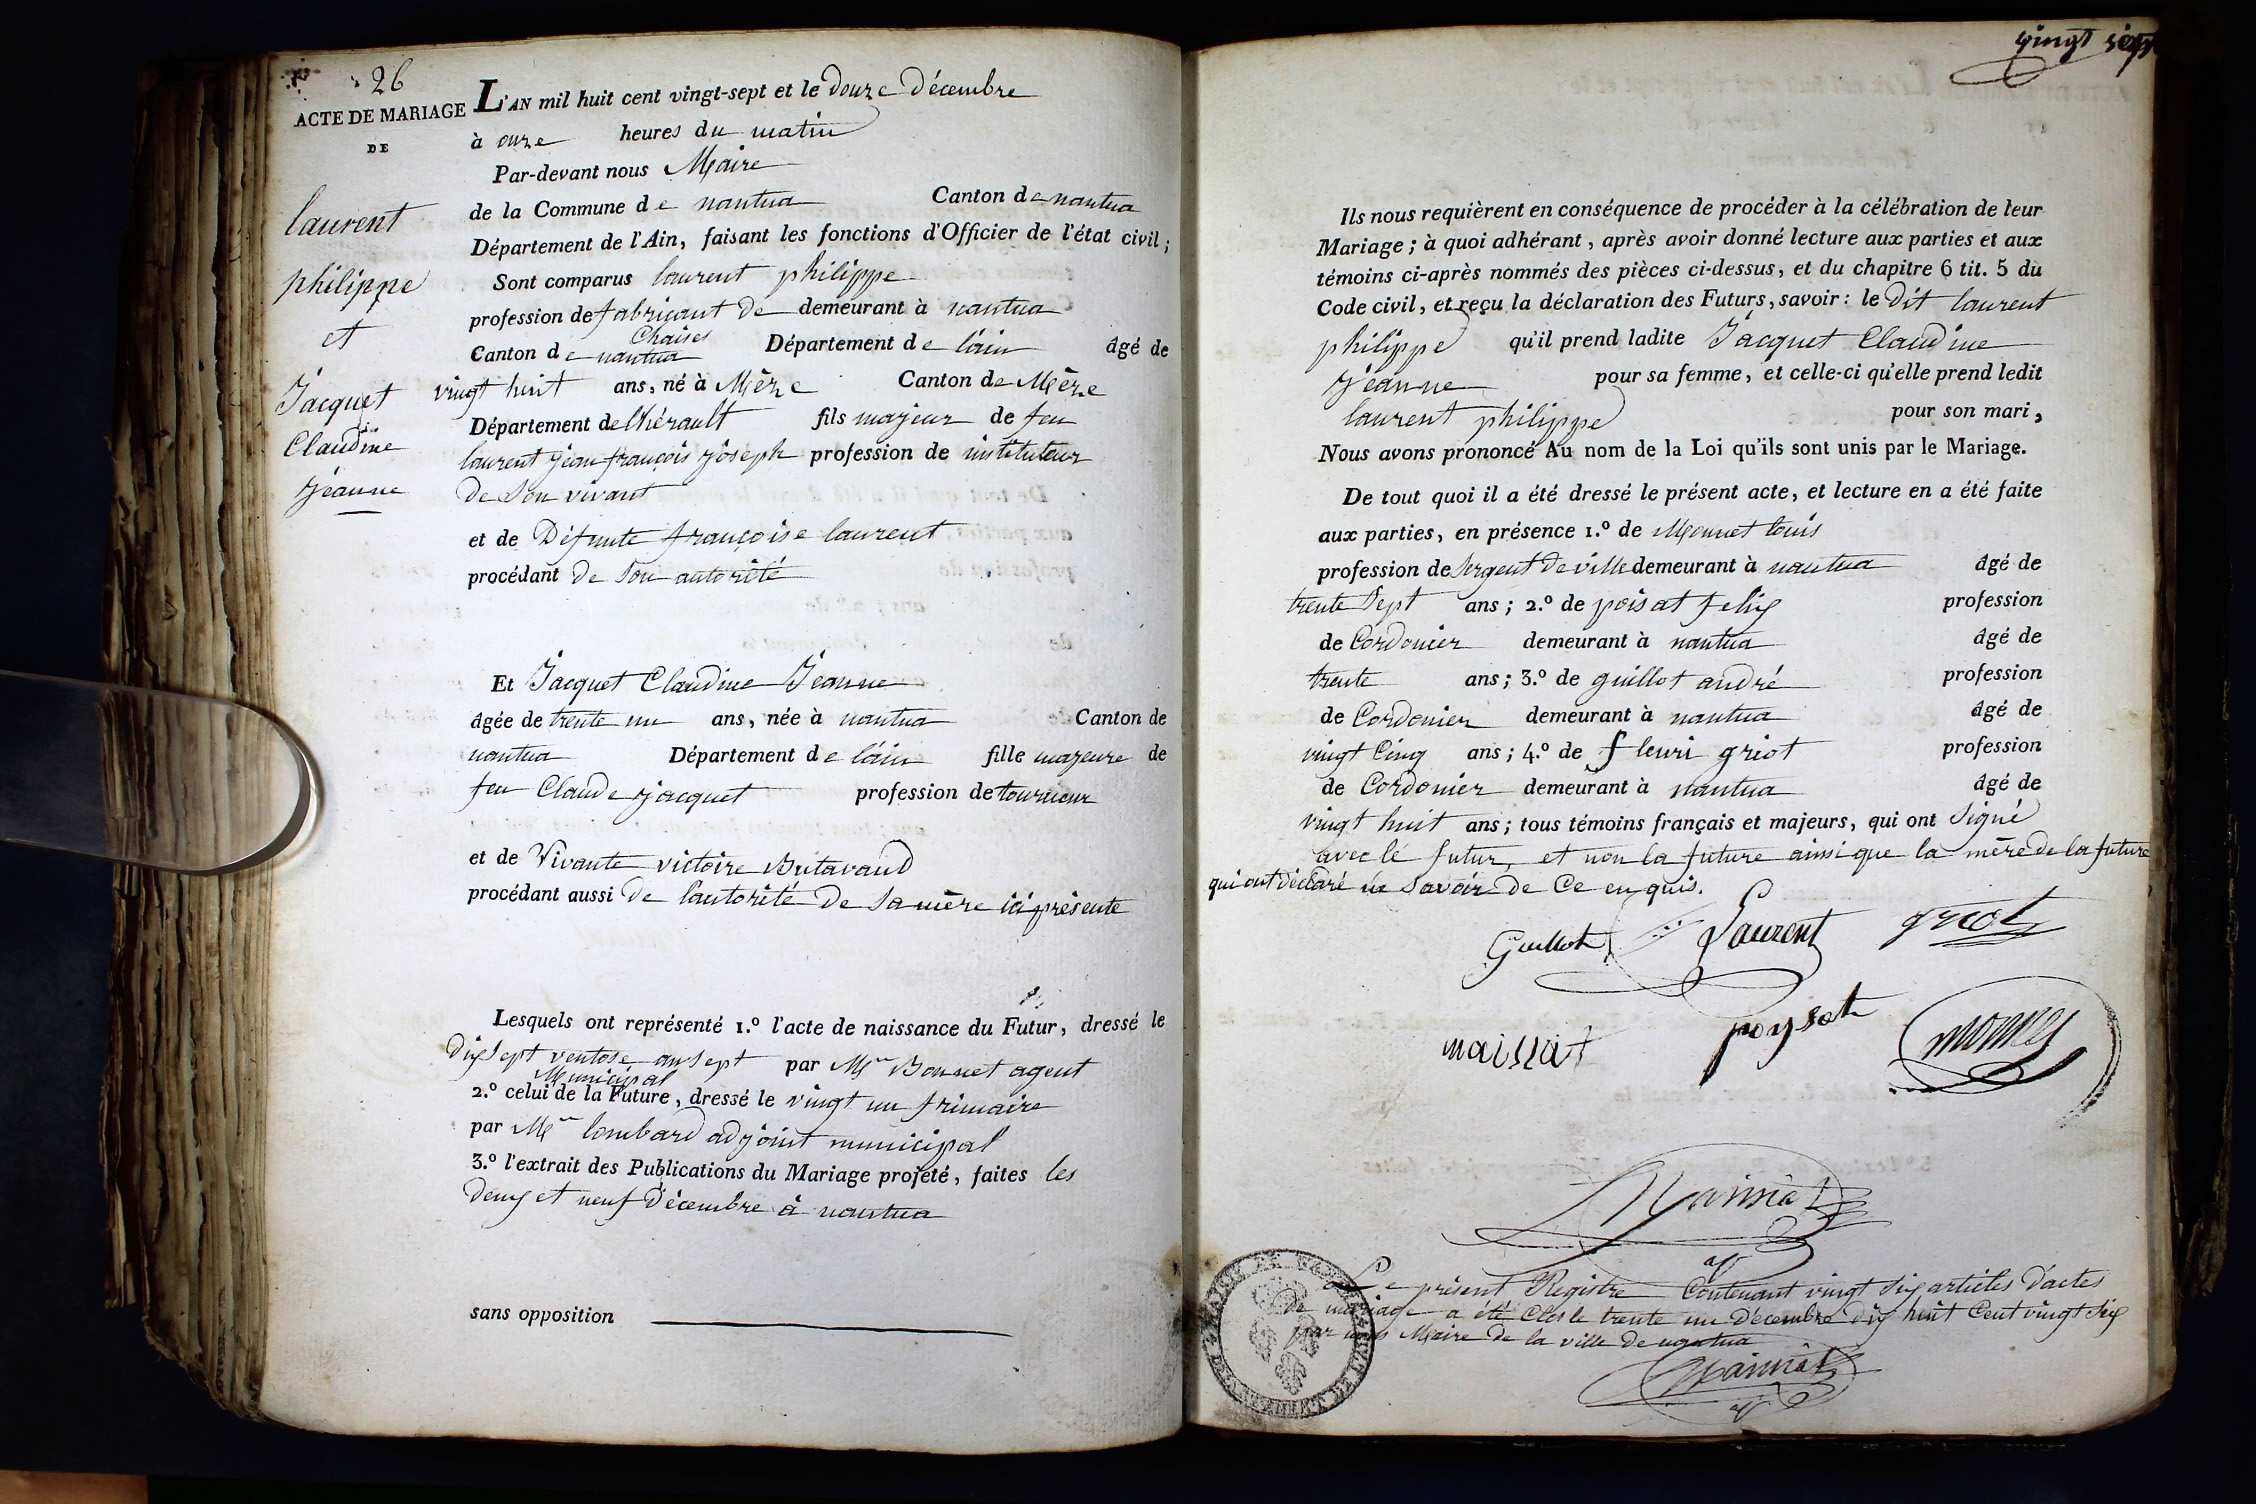 26
ACTE DE MARIAGE
DE
laurent
philippe
et
Jacquet
Claudine
Jeanne
L'AN mil huit cent vingt-sept et le douze décembre
à onze heures du matin
Par-devant nous Maire
de la Commune de nantua Canton de nantua
Département de l'Ain, faisant les fonctions d'Officier de l'état civil;
Sont comparus laurent philippe
profession de fabricant de demeurant à nantua
Chaises
Canton de nantua Département de l'ain âgé de
vingt huit ans, né à Mèze Canton de Mèze
Département de l'hérault fils majeur de feu
laurent jean françois joseph profession de instituteur
de Son vivant
et de Défunte françoise laurent
procédant de Son autorité
Et Jacquet Claudine Jeanne
âgée de trente un ans, née à nantua Canton de
nantua Département de l'ain fille majeure de
feu Claude jacquet profession de tourneur
et de Vivante victoire
procédant aussi de l'autorité de Sa mère ici présente
Lesquels ont représenté 1.º l'acte de naissance du Futur, dressé le
dix Sept ventose an Sept par Mr Bonnet agent
Municipal
2.º celui de la Future, dressé le vingt un frimaire
par Mr lombard adjoint municipal
3.º l'extrait des Publications du Mariage projeté, faites les
deux et neuf Décembre à nantua
sans opposition
vingt sept
Ils nous requièrent en conséquence de procéder à la célébration de leur
Mariage; à quoi adhérant, après avoir donné lecture aux parties et aux
témoins ci-après nommés des pièces ci-dessus, et du chapitre 6 tit. 5 du
Code civil, et reçu la déclaration des Futurs, savoir: le dit laurent
philippe qu'il prend ladite Jacquet Claudine
Jeanne pour sa femme, et celle-ci qu'elle prend ledit
laurent philippe pour son mari,
Nous avons prononcé Au nom de la Loi qu'ils sont unis par le Mariage.
De tout quoi il a été dressé le présent acte, et lecture en a été faite
aux parties, en présence 1.º de Monnet louis
profession de Sergent de ville demeurant à nantua âgé de
trente Sept ans; 2.º de poisat felix profession
de Cordonier demeurant à nantua âgé de
trente ans; 3.º de guillot andré profession
de Cordonier demeurant à nantua âgé de
vingt Cinq ans; 4.º de fleuri griot profession
de Cordonier demeurant à nantua âgé de
vingt huit ans; tous témoins français et majeurs, qui ont Signé
avec le futur, et non la future ainsi que la mère de la future
qui ont déclaré ne Savoir de Ce enquis.
Guillot Laurent griot
maissiat poysat monnet
Maissiat
Le présent Registre Contenant vingt Six articles d'actes
de mariage a été Clos le trente un décembre dix huit Cent vingt Six
par nous Maire de la ville de nantua
Maissiat